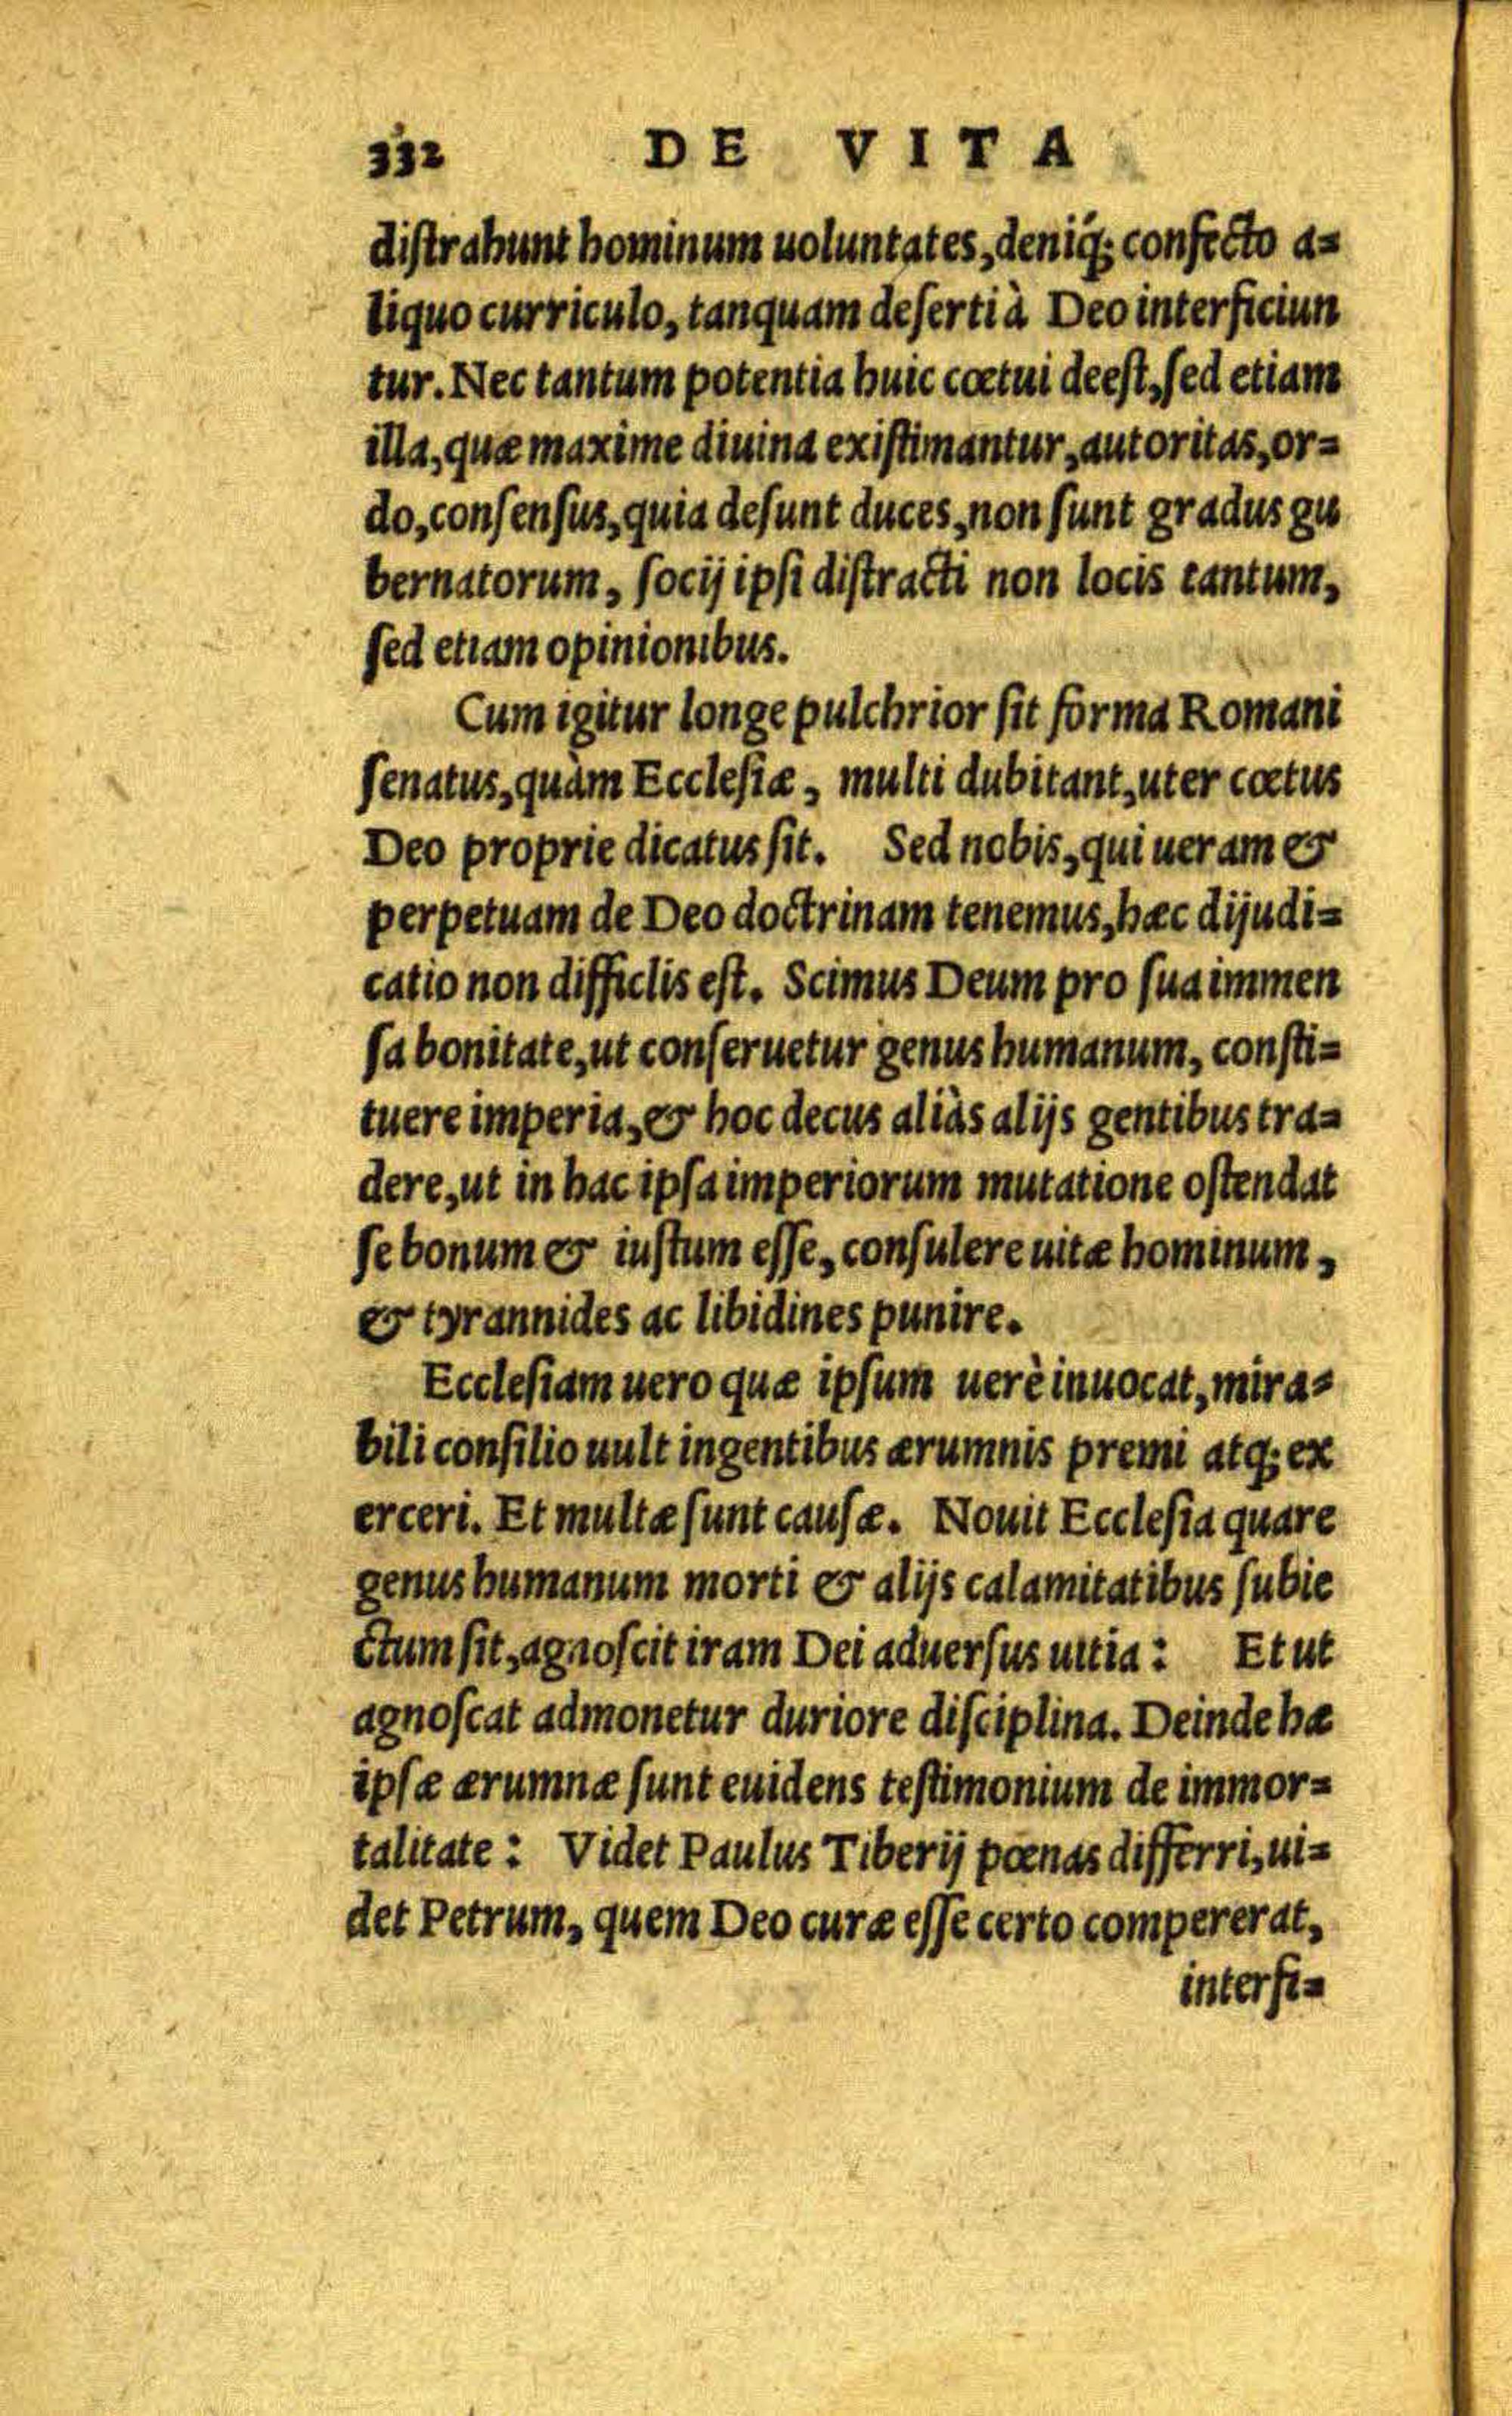 332 DE VITA
distrahunt hominum uoluntates, deniq́; confecto a=
liquo curriculo, tanquam deserti à Deo interficiun
tur. Nec tantum potentia huic cœtui deest, sed etiam
illa, quæ maxime diuina existimantur, autoritas, or=
do, consensus, quia desunt duces, non sunt gradus gu
bernatorum, socij ipsi distracti non locis tantum,
sed etiam opinionibus.
Cum igitur longe pulchrior sit forma Romani
senatus, quàm Ecclesiæ, multi dubitant, uter cœtus
Deo proprie dicatus sit. Sed nobis, qui ueram &
perpetuam de Deo doctrinam tenemus, hæc dijudi=
catio non difficlis est. Scimus Deum pro sua immen
sa bonitate, ut conseruetur genus humanum, consti=
tuere imperia, & hoc decus aliàs alijs gentibus tra=
dere, ut in hac ipsa imperiorum mutatione ostendat
se bonum & iustum esse, consulere uitæ hominum,
& tyrannides ac libidines punire.
Ecclesiam uero quæ ipsum uerè inuocat, mira=
bili consilio uult ingentibus ærumnis premi atq; ex
erceri. Et multæ sunt causæ. Nouit Ecclesia quare
genus humanum morti & alijs calamitatibus subie
ctum sit, agnoscit iram Dei aduersus uitia: Et ut
agnoscat admonetur duriore disciplina. Deinde hæ
ipsæ ærumnæ sunt euidens testimonium de immor=
talitate: Videt Paulus Tiberij pœnas differri, ui=
det Petrum, quem Deo curæ esse certo compererat,
interfi=